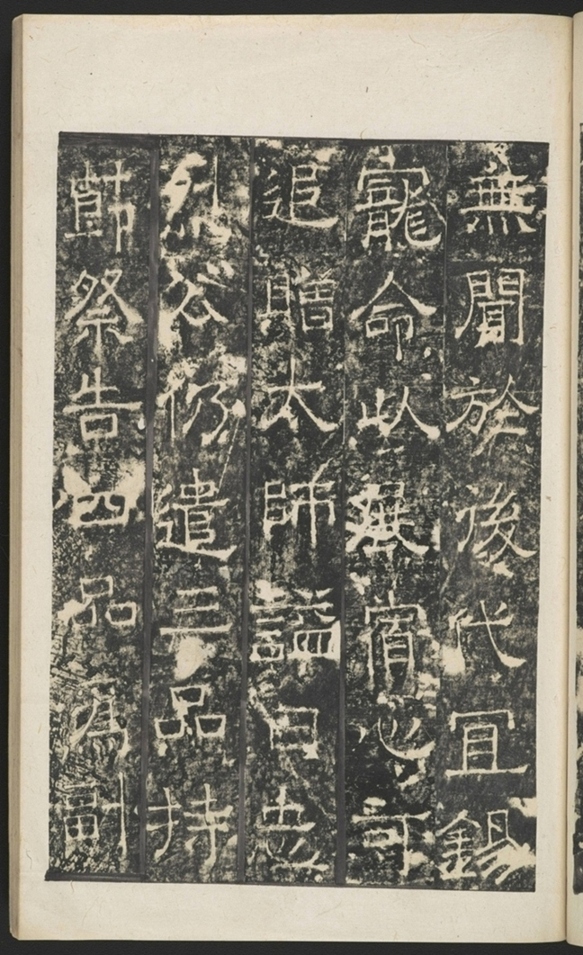 無聞於後代宜錫
寵命以展宿心可
追贈太師謚曰忠
烈公仍遣三品持
節祭告四品為副